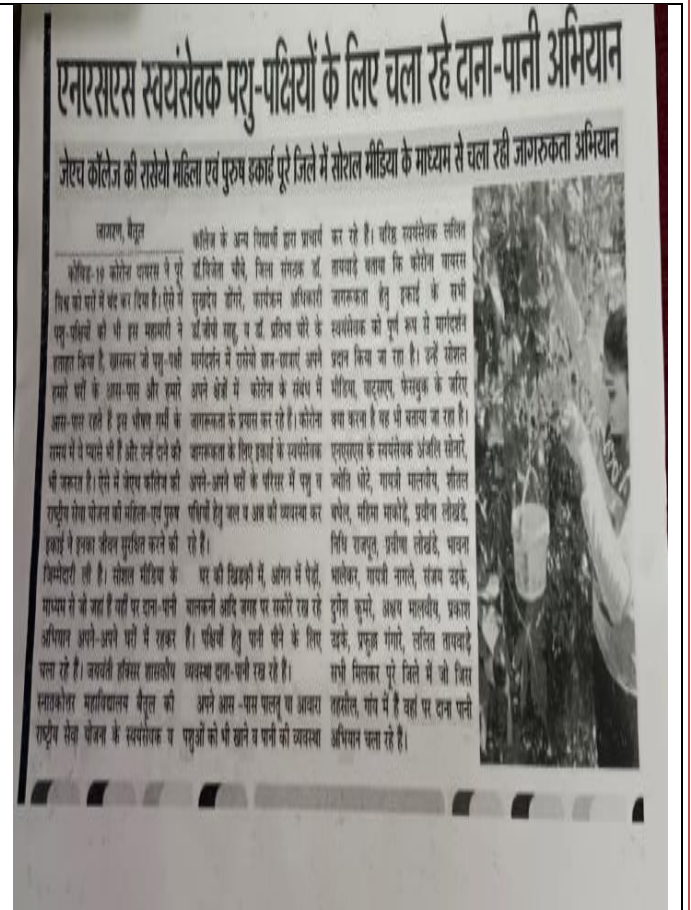 एनएसएस स्वयंसेवक पशु-पक्षियों के लिए चला रहे दाना-पानी अभियान
जेएच कॉलेज की रासेयो महिला एवं पुरुष इकाई पूरे जिले में सोशल मीडिया के माध्यम से चला रही जागरुकता अभियान
जागरण, बैतूल
कोविड-19 कोरोना वायरस ने पूरे
विश्व को घरों में बंद कर दिया है। ऐसे में
पशु-पक्षियों को भी इस महामारी ने
हताहत किया है, खासकर जो पशु-पक्षी
हमारे घरों के आस-पास और हमारे
आस-पास रहते हैं इस भीषण गर्मी के
समय में वे प्यासे भी हैं और उन्हें दाने की
भी जरूरत है। ऐसे में जेएच कॉलेज की
राष्ट्रीय सेवा योजना की महिला-एवं पुरुष
इकाई ने इनका जीवन सुरक्षित करने की
जिम्मेदारी ली है। सोशल मीडिया के
माध्यम से जो जहां हैं वहीं पर दाना-पानी
अभियान अपने-अपने घरों में रहकर
चला रहे हैं। जयवंती हॉक्सर शासकीय
स्नातकोत्तर महाविद्यालय बैतूल की
राष्ट्रीय सेवा योजना के स्वयंसेवक व
कॉलेज के अन्य विद्यार्थी द्वारा प्राचार्य
डॉ.विजेता चौबे, जिला संगठक डॉ.
सुखदेव डोंगरे, कार्यक्रम अधिकारी
डॉ.जीपी साहू, व डॉ. प्रतिभा चौरे के
मार्गदर्शन में रासेयो छात्र-छात्राएं अपने
अपने क्षेत्रों में कोरोना के संबंध में
जागरूकता के प्रयास कर रहे हैं। कोरोना
जागरूकता के लिए इकाई के स्वयंसेवक
अपने-अपने घरों के परिसर में पशु व
पक्षियों हेतु जल व अन्न की व्यवस्था कर
रहे हैं।
घर की खिड़की में, आंगन में पेड़ों,
बालकनी आदि जगह पर सकोरे रख रहे
हैं। पक्षियों हेतु पानी पीने के लिए
व्यवस्था दाना-पानी रख रहे हैं।
अपने आस -पास पालतू या आवारा
पशुओं को भी खाने व पानी की व्यवस्था
कर रहे हैं। वरिष्ठ स्वयंसेवक ललित
तायवाड़े बताया कि कोरोना वायरस
जागरूकता हेतु इकाई के सभी
स्वयंसेवक को पूर्ण रूप से मार्गदर्शन
प्रदान किया जा रहा है। उन्हें सोशल
मीडिया, वाट्सएप, फेसबुक के जरिए
क्या करना है यह भी बताया जा रहा है।
एनएसएस के स्वयंसेवक अंजलि सोनारे,
ज्योति धोटे, गायत्री मालवीय, शीतल
बघेल, महिमा माकोड़े, प्रवीना लोखंडे,
निधि राजपूत, प्रवीणा लोखंडे, भावना
भालेकर, गायत्री नागले, संजय उइके,
दुर्गेश कुमरे, अक्षय मालवीय, प्रकाश
उइके, प्रफुल्ल गंगारे, ललित तायवाड़े
सभी मिलकर पूरे जिले में जो जिस
तहसील, गांव में हैं वहां पर दाना पानी
अभियान चला रहे हैं।